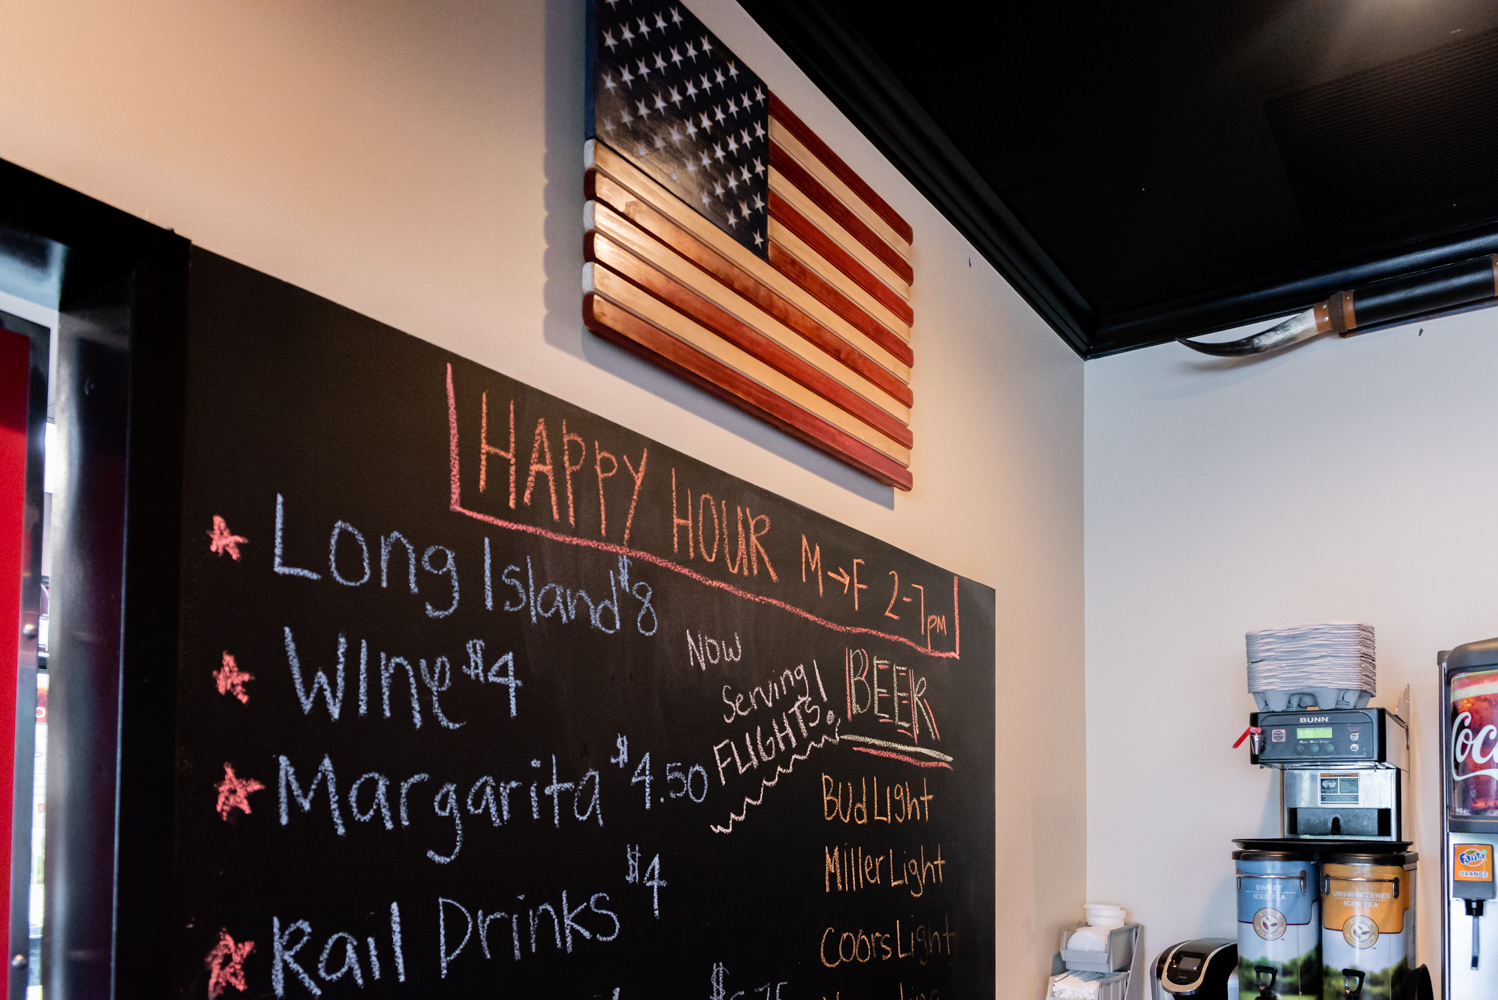 HAPPY HOUR M→F 2-7pm
Long Island $8
Wine $4
Margarita $4.50
Rail Drinks $4
Now
Serving
FLIGHTS!
BEER
Bud Light
Miller Light
Coors Light
BUNN
SWEET
ICED TEA
UNSWEETENED
ICED TEA
Coc
Fanta
ORANGE